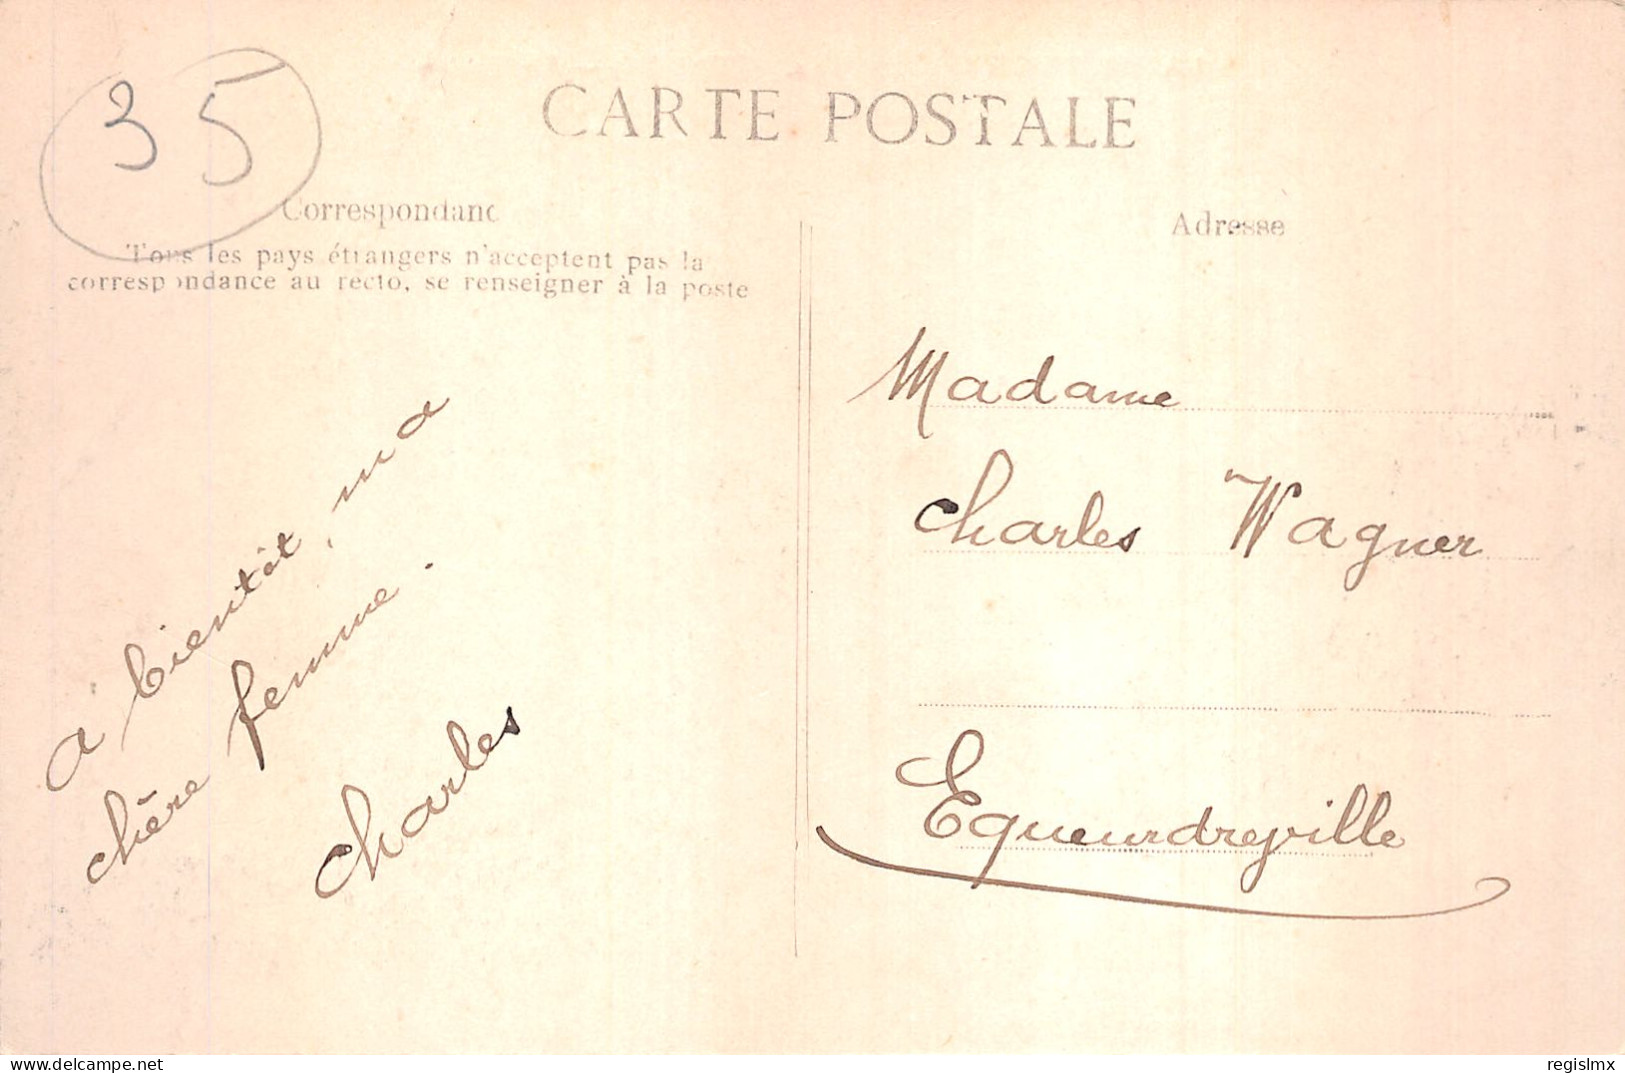 35
CARTE POSTALE
Correspondanc
Tous les pays étrangers n'acceptent pas la
correspondance au recto, se renseigner à la poste
a bientôt, ma
chère femme.
Charles
Adresse
Madame
Charles Wagner
Equeurdreville
delcampe.net
regislmx